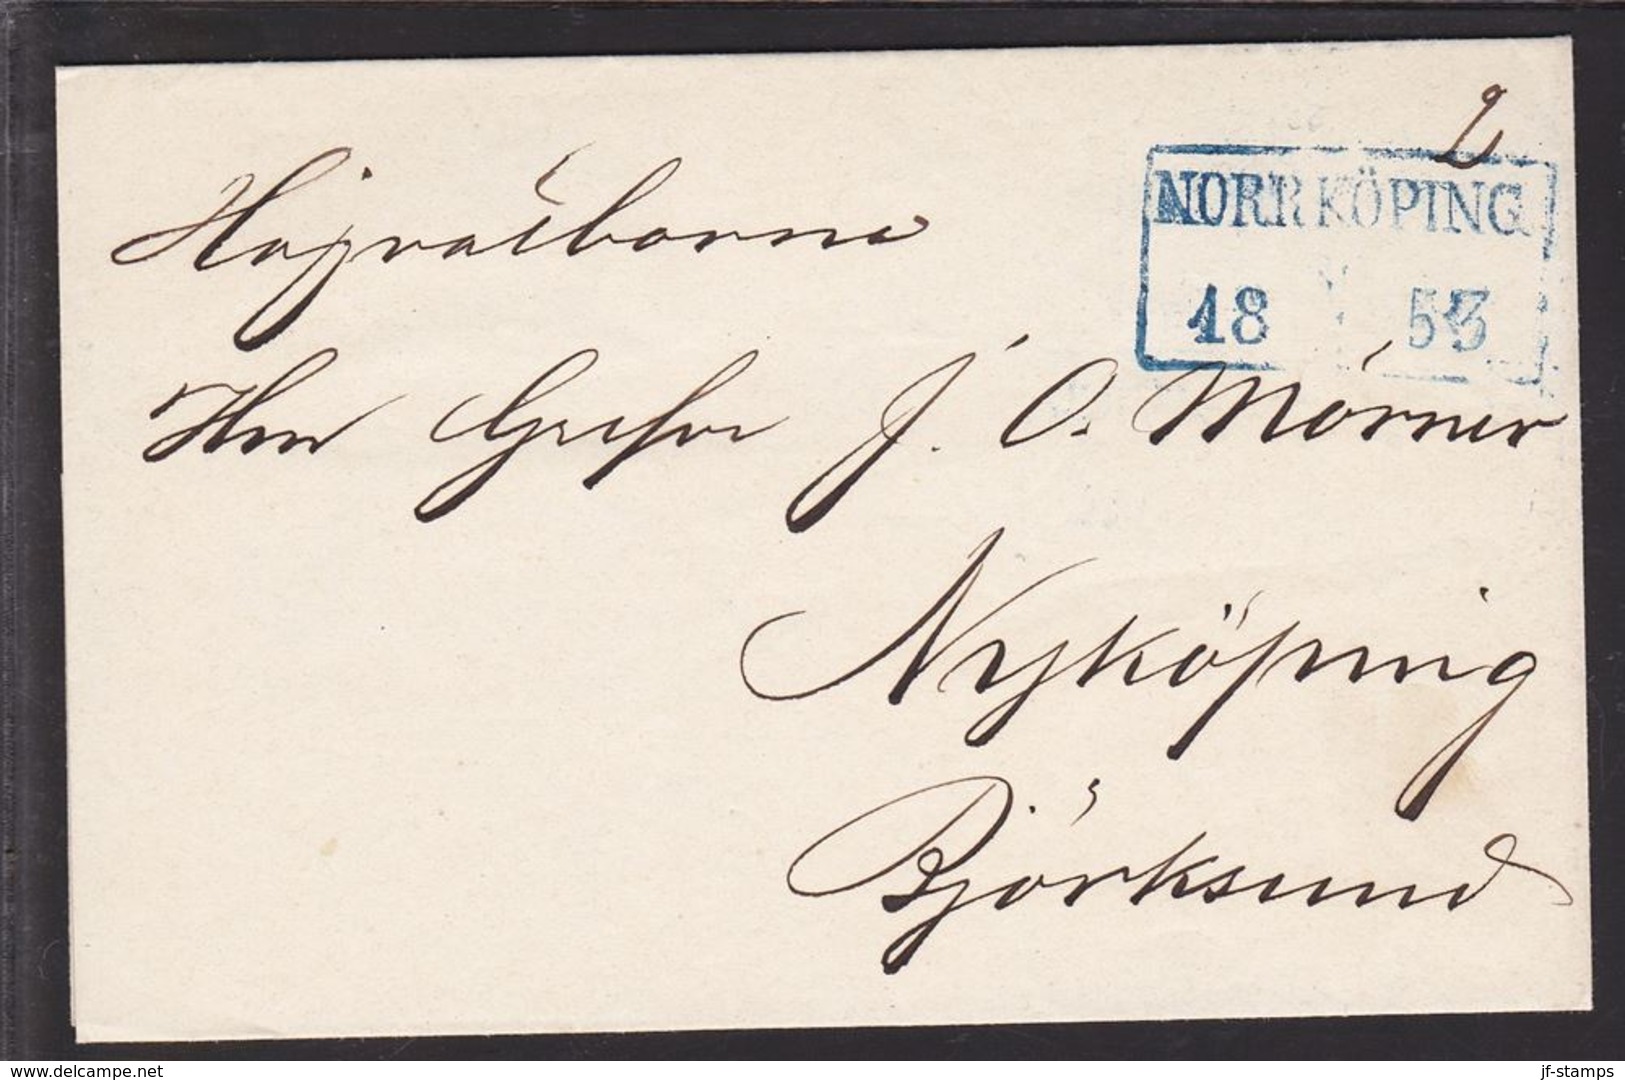 2
NORRKÖPING
18 53
Högvälborne
Herr Grefve J. O. Mörner
Nyköping
Björksund
www.delcampe.net
jf-stamps